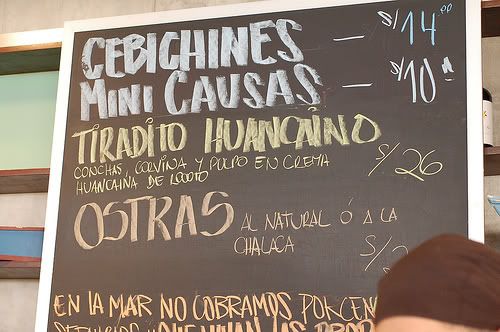 CEBICHINES — S/14.00
MINI CAUSAS — S/10.
TIRADITO HUANCAINO
CONCHAS, CORVINA Y PULPO EN CREMA S/26
HUANCAINA DE LOCOTO
OSTRAS AL NATURAL Ó A LA
CHALACA S/2
EN LA MAR NO COBRAMOS
QUE VIVAN LAS